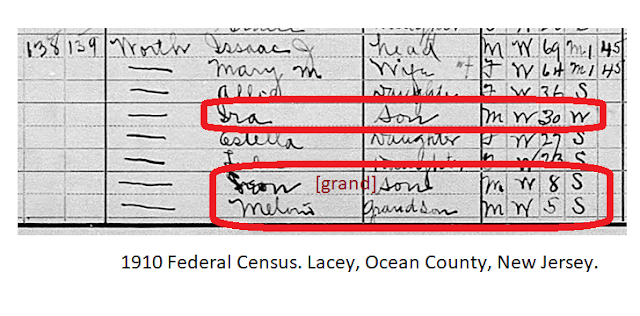 138 139 Worth Issaac J head M W 69 M1 45
Mary M Wife F W 64 M1 45
Allie Daughter F W 36 S
Ira Son M W 30 W
Estella Daughter F W 27 S
Daughter W 23 S
[grand] Son M W 8 S
Melvin Grandson M W 5 S
1910 Federal Census. Lacey, Ocean County, New Jersey.